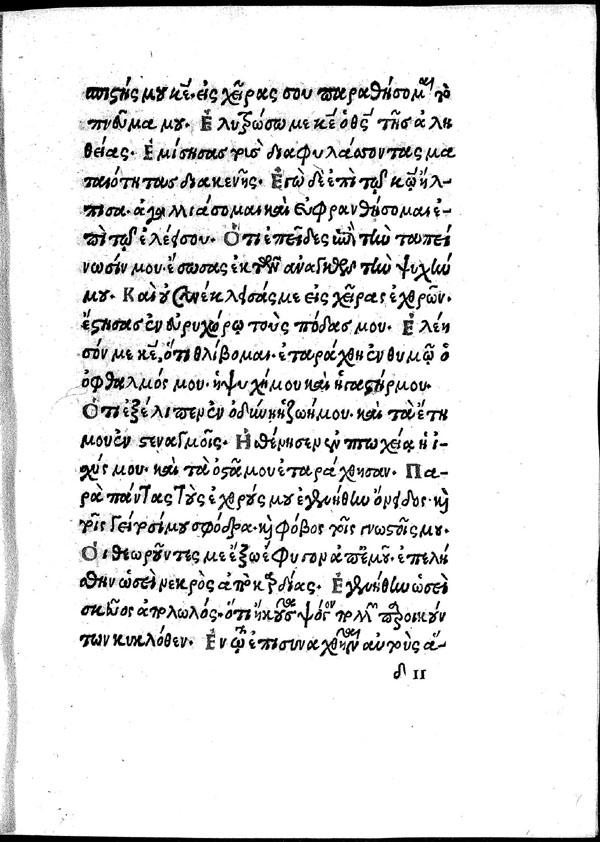 πιστής μου κε̄. εἰς χεῖρας σου παραθήσομαι τὸ
πνεῦμα μου. Ἐλυτρώσω με κε̄ ὁ θς̄ τῆς ἀλη
θείας. Ἐμίσησας τοὺς διαφυλάσσοντας μα
ταιότητας διακενῆς. Ἐγὼ δὲ ἐπὶ τῷ κῶ ἤλ-
πισα. ἀγαλλιάσομαι καὶ εὐφρανθήσομαι ἐ-
πὶ τῷ ἐλέει σου. Ὅτι ἐπεῖδες ἐπὶ τὴν ταπεί
νωσίν μου. ἔσωσας ἐκ τῶν ἀναγκῶν τὴν ψυχήν
μου. Καὶ οὐ συνέκλεισάς με εἰς χεῖρας ἐχθρῶν.
ἔστησας ἐν εὐρυχώρῳ τοὺς πόδας μου. Ἐλέη
σόν με κε̄, ὅτι θλίβομαι. ἐταράχθη ἐν θυμῷ ὁ
ὀφθαλμός μου. ἡ ψυχή μου καὶ ἡ γαστήρ μου.
Ὅτι ἐξέλιπεν ἐν ὀδύνη ἡ ζωή μου. καὶ τὰ ἔτη
μου ἐν στεναγμοῖς. Ἠσθένησεν ἐν πτωχείᾳ ἡ ἰ-
χύς μου. καὶ τὰ ὀστᾶ μου ἐταράχθησαν. Πα-
ρὰ πάντας τοὺς ἐχθρούς μου ἐγενήθην ὄνειδος. καὶ
τοῖς γείτοσί μου σφόδρα. καὶ φόβος τοῖς γνωστοῖς μου.
Οἱ θεωροῦντες με ἔξω ἔφυγον ἀπ' ἐμοῦ. ἐπελή
σθην ὡσεὶ νεκρὸς ἀπὸ καρδίας. Ἐγενήθην ὡσεὶ
σκεῦος ἀπολωλός. ὅτι ἤκουσα ψόγον πολλῶν παροικούν
των κυκλόθεν. Ἐν τῷ ἐπισυναχθῆναι αὐτοὺς ἅ-
δ II